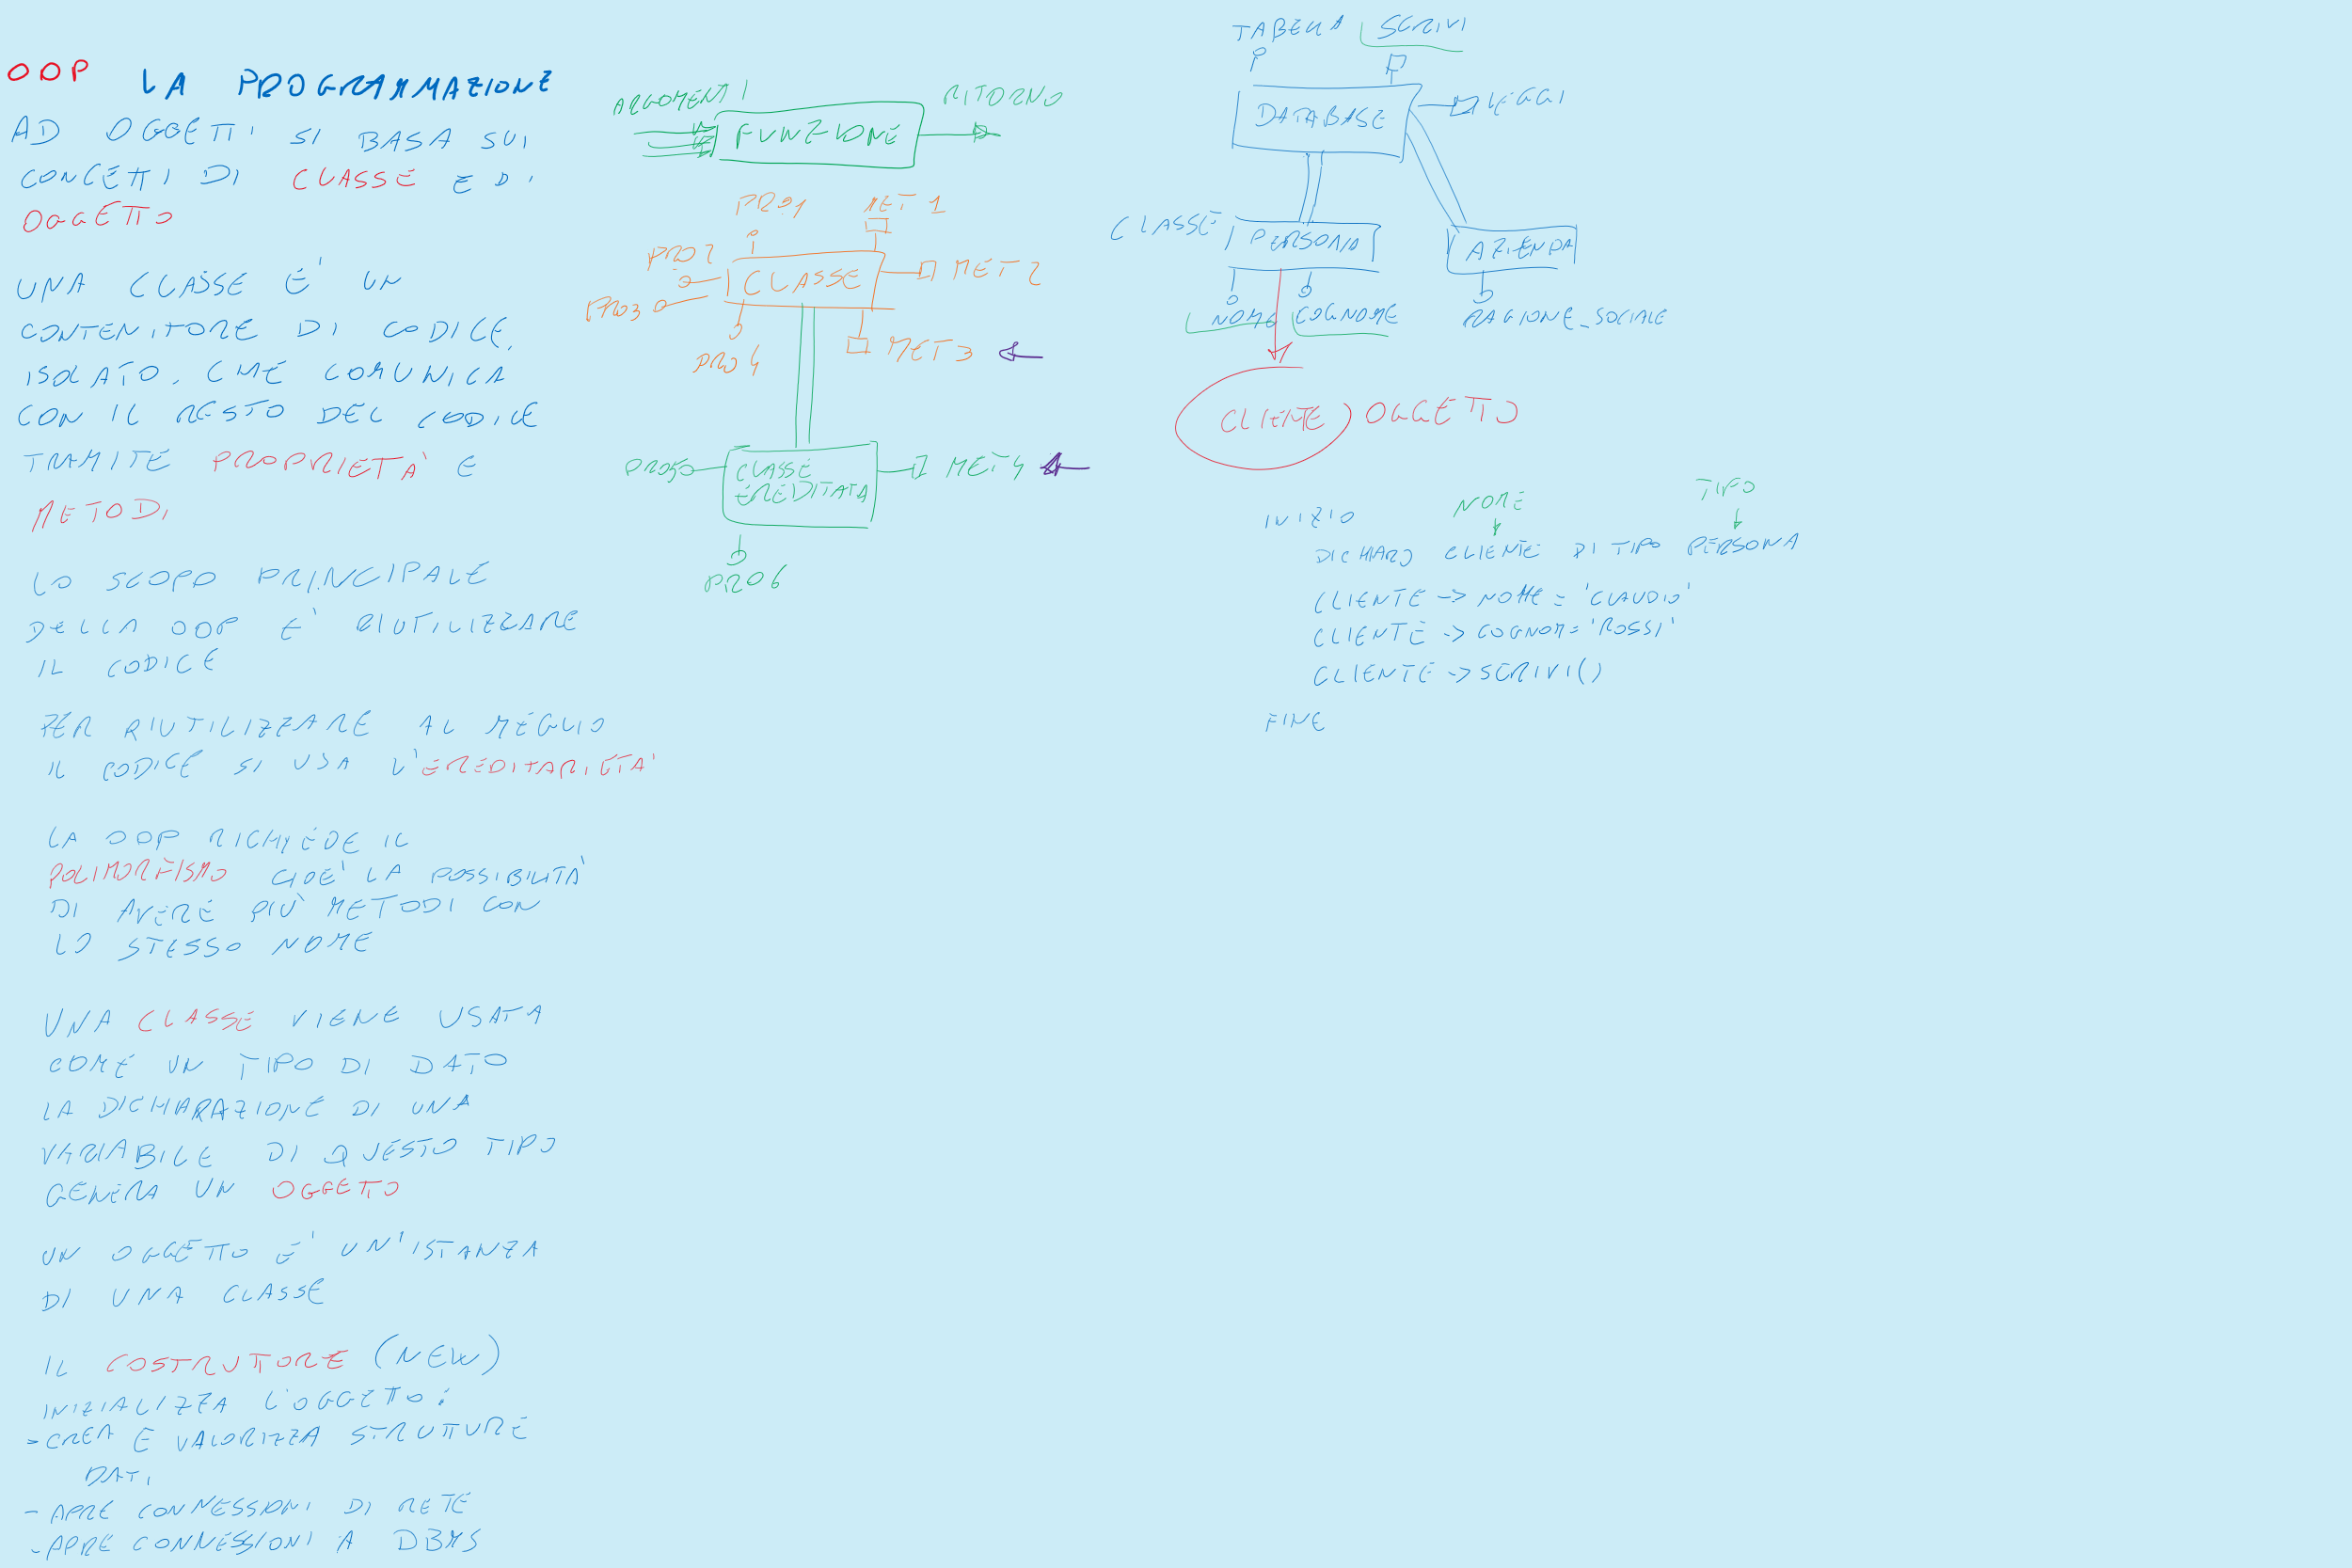 OOP LA PROGRAMMAZIONE
AD OGGETTI SI BASA SUI
CONCETTI DI CLASSE E DI
OGGETTO
UNA CLASSE E' UN
CONTENITORE DI CODICE,
ISOLATO, CHE COMUNICA
CON IL RESTO DEL CODICE
TRAMITE PROPRIETA' E
METODI
LO SCOPO PRINCIPALE
DELLA OOP E' RIUTILIZZARE
IL CODICE
PER RIUTILIZZARE AL MEGLIO
IL CODICE SI USA L'EREDITARIETA'
LA OOP RICHIEDE IL
POLIMORFISMO CIOE' LA POSSIBILITA'
DI AVERE PIU' METODI CON
LO STESSO NOME
UNA CLASSE VIENE USATA
COME UN TIPO DI DATO
LA DICHIARAZIONE DI UNA
VARIABILE DI QUESTO TIPO
GENERA UN OGGETTO
UN OGGETTO E' UN'ISTANZA
DI UNA CLASSE
IL COSTRUTTORE (NEW)
INIZIALIZZA L'OGGETTO:
- CREA E VALORIZZA STRUTTURE
DATI
- APRE CONNESSIONI DI RETE
- APRE CONNESSIONI A DBMS
ARGOMENTI
RITORNO
FUNZIONE
PRO1
MET 1
PRO2
CLASSE
MET 2
PRO3
PRO 4
MET 3
PRO5
CLASSE
EREDITATA
MET 4
PRO6
TABELLA
SCRIVI
DATABASE
LEGGI
CLASSE
PERSONA
AZIENDA
NOME
COGNOME
RAGIONE_SOCIALE
CLIENTE
OGGETTO
NOME
TIPO
INIZIO
DICHIARO CLIENTE DI TIPO PERSONA
CLIENTE -> NOME = 'CLAUDIO'
CLIENTE -> COGNOM = 'ROSSI'
CLIENTE -> SCRIVI()
FINE